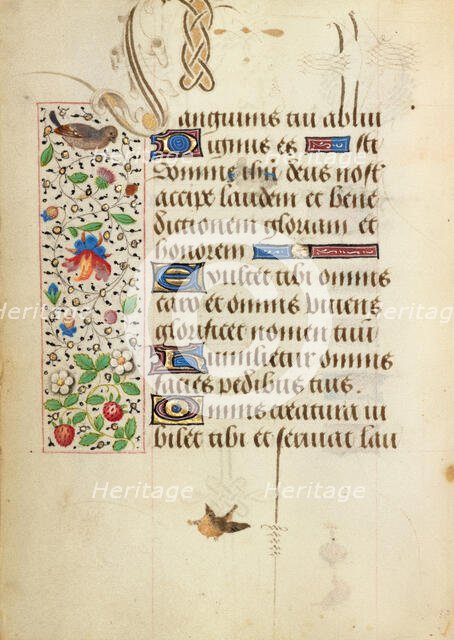 Sanguinis tui ablui
Dignus es
Domine
deus nost
accipe laudem et bene
dictionem gloriam et
honorem
Exultet tibi omnis
caro et omnis vivens
glorificet nomen tuū
Humilietur omnis
facies pedibus tuis.
Omnis creatura iu
bilet tibi et serviat lau
Heritage
Heritage
Heritage
Heritage
Heritage
Heritage
Heritage
Heritage
Heritage